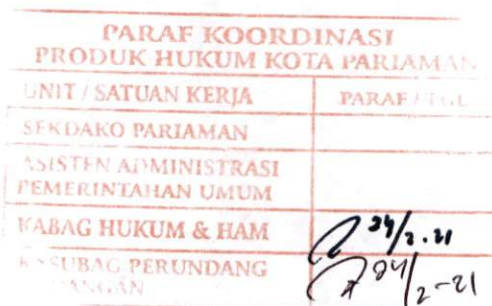 PARAF KOORDINASI
PRODUK HUKUM KOTA PARIAMAN
UNIT / SATUAN KERJA PARAF / TGL
SEKDAKO PARIAMAN
ASISTEN ADMINISTRASI
PEMERINTAHAN UMUM
KABAG HUKUM & HAM 24/2.21
KASUBAG PERUNDANG 24/2-21
UNDANGAN